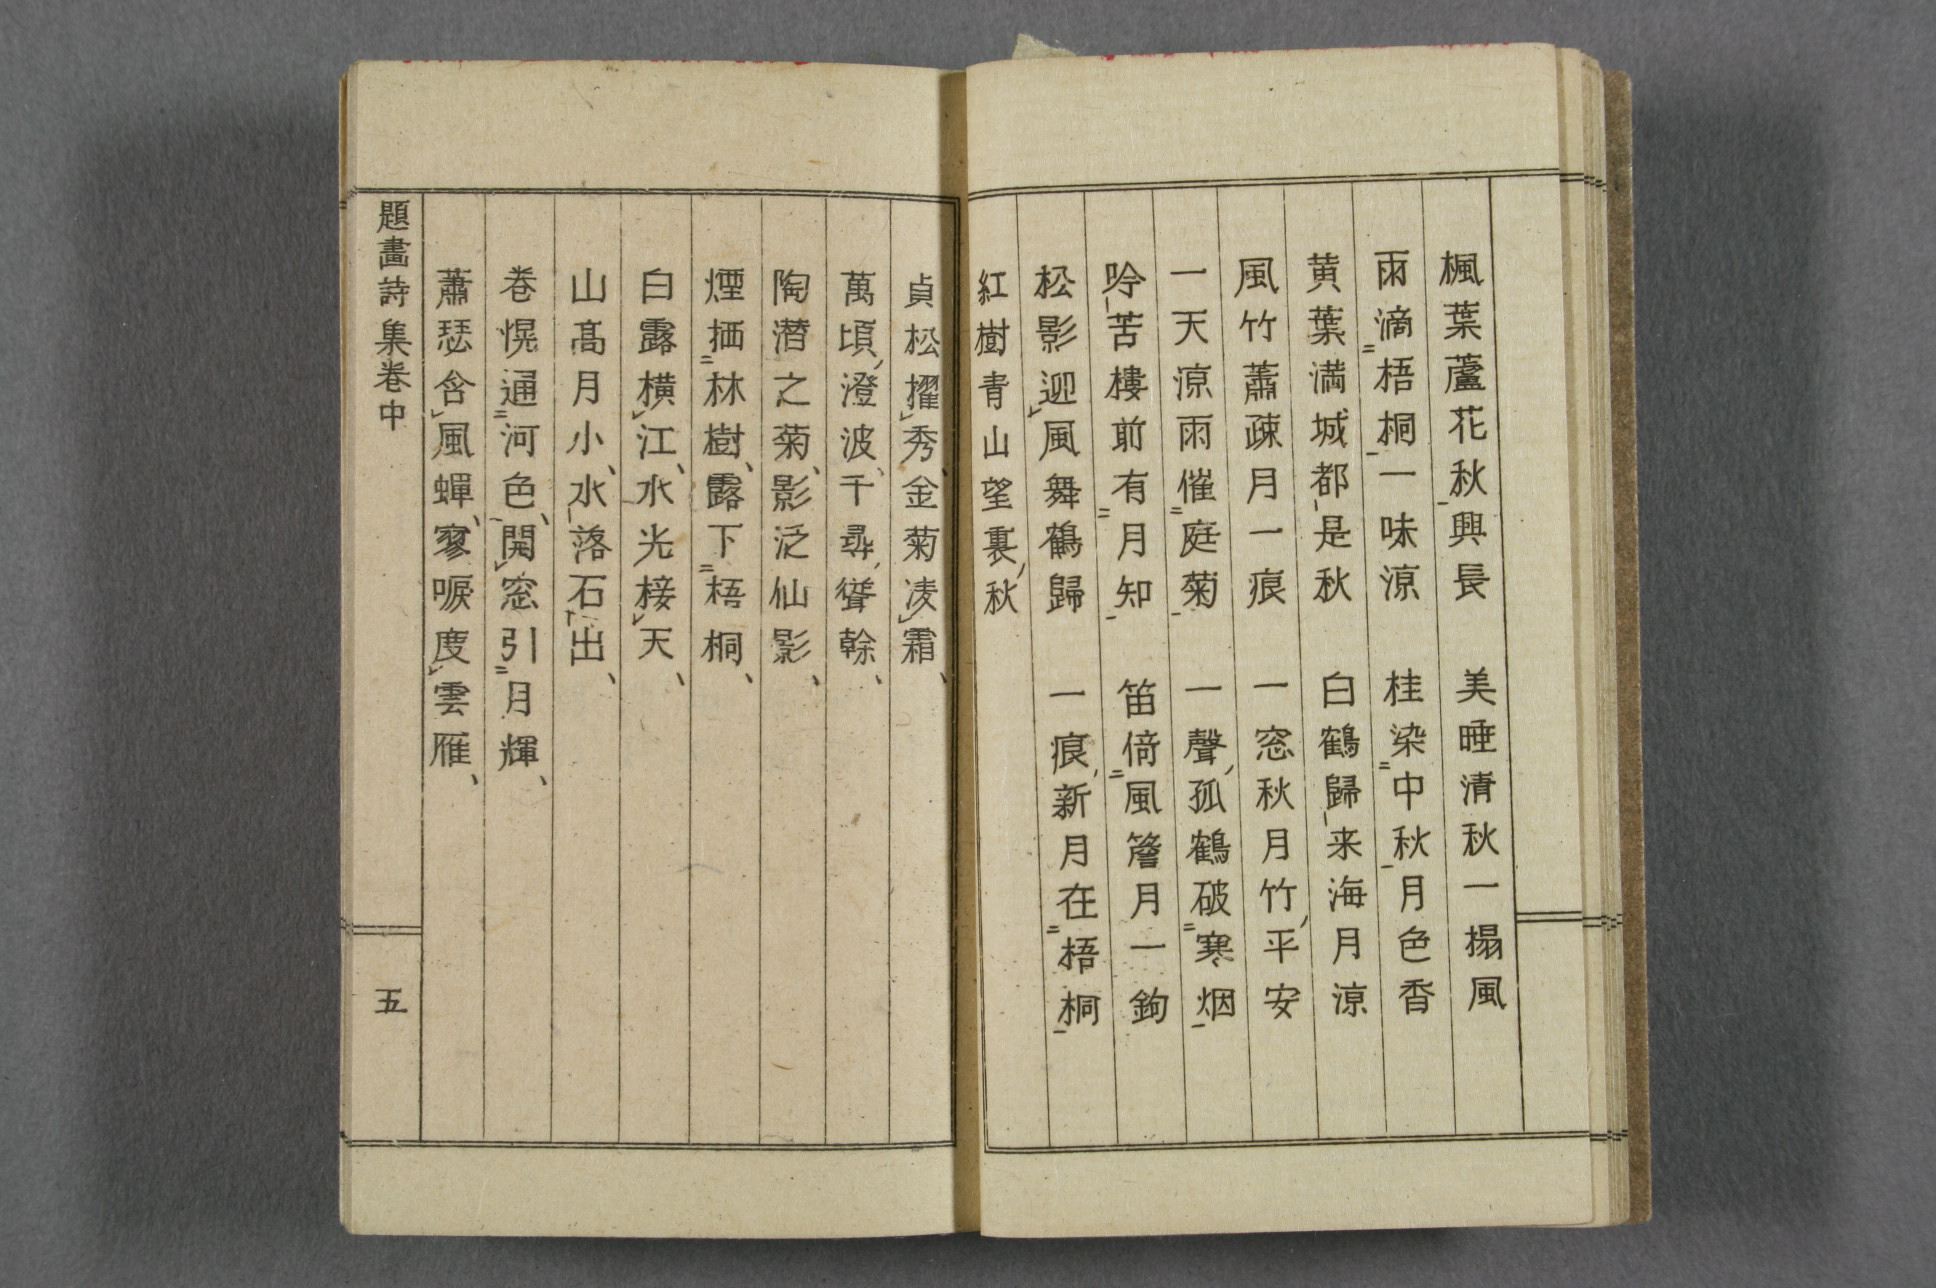 楓葉蘆花秋興長　美睡清秋一榻風
雨滴梧桐一味凉　桂染中秋月色香
黄葉満城都是秋　白鶴歸来海月凉
風竹蕭疎月一痕　一窓秋月竹平安
一天凉雨催庭菊　一聲孤鶴破寒烟
吟苦樓前有月知　笛倚風簷月一鉤
松影迎風舞鶴歸　一痕新月在梧桐
紅樹青山望裏秋
貞松擢秀、金菊凌霜、
萬頃澄波、千尋聳榦、
陶潜之菊、影泛仙影、
煙栖林樹、露下梧桐、
白露横江、水光接天、
山高月小、水落石出、
巻幌通河色、開窓引月輝、
蕭瑟含風蟬、寥唳度雲雁、
題畫詩集巻中
五